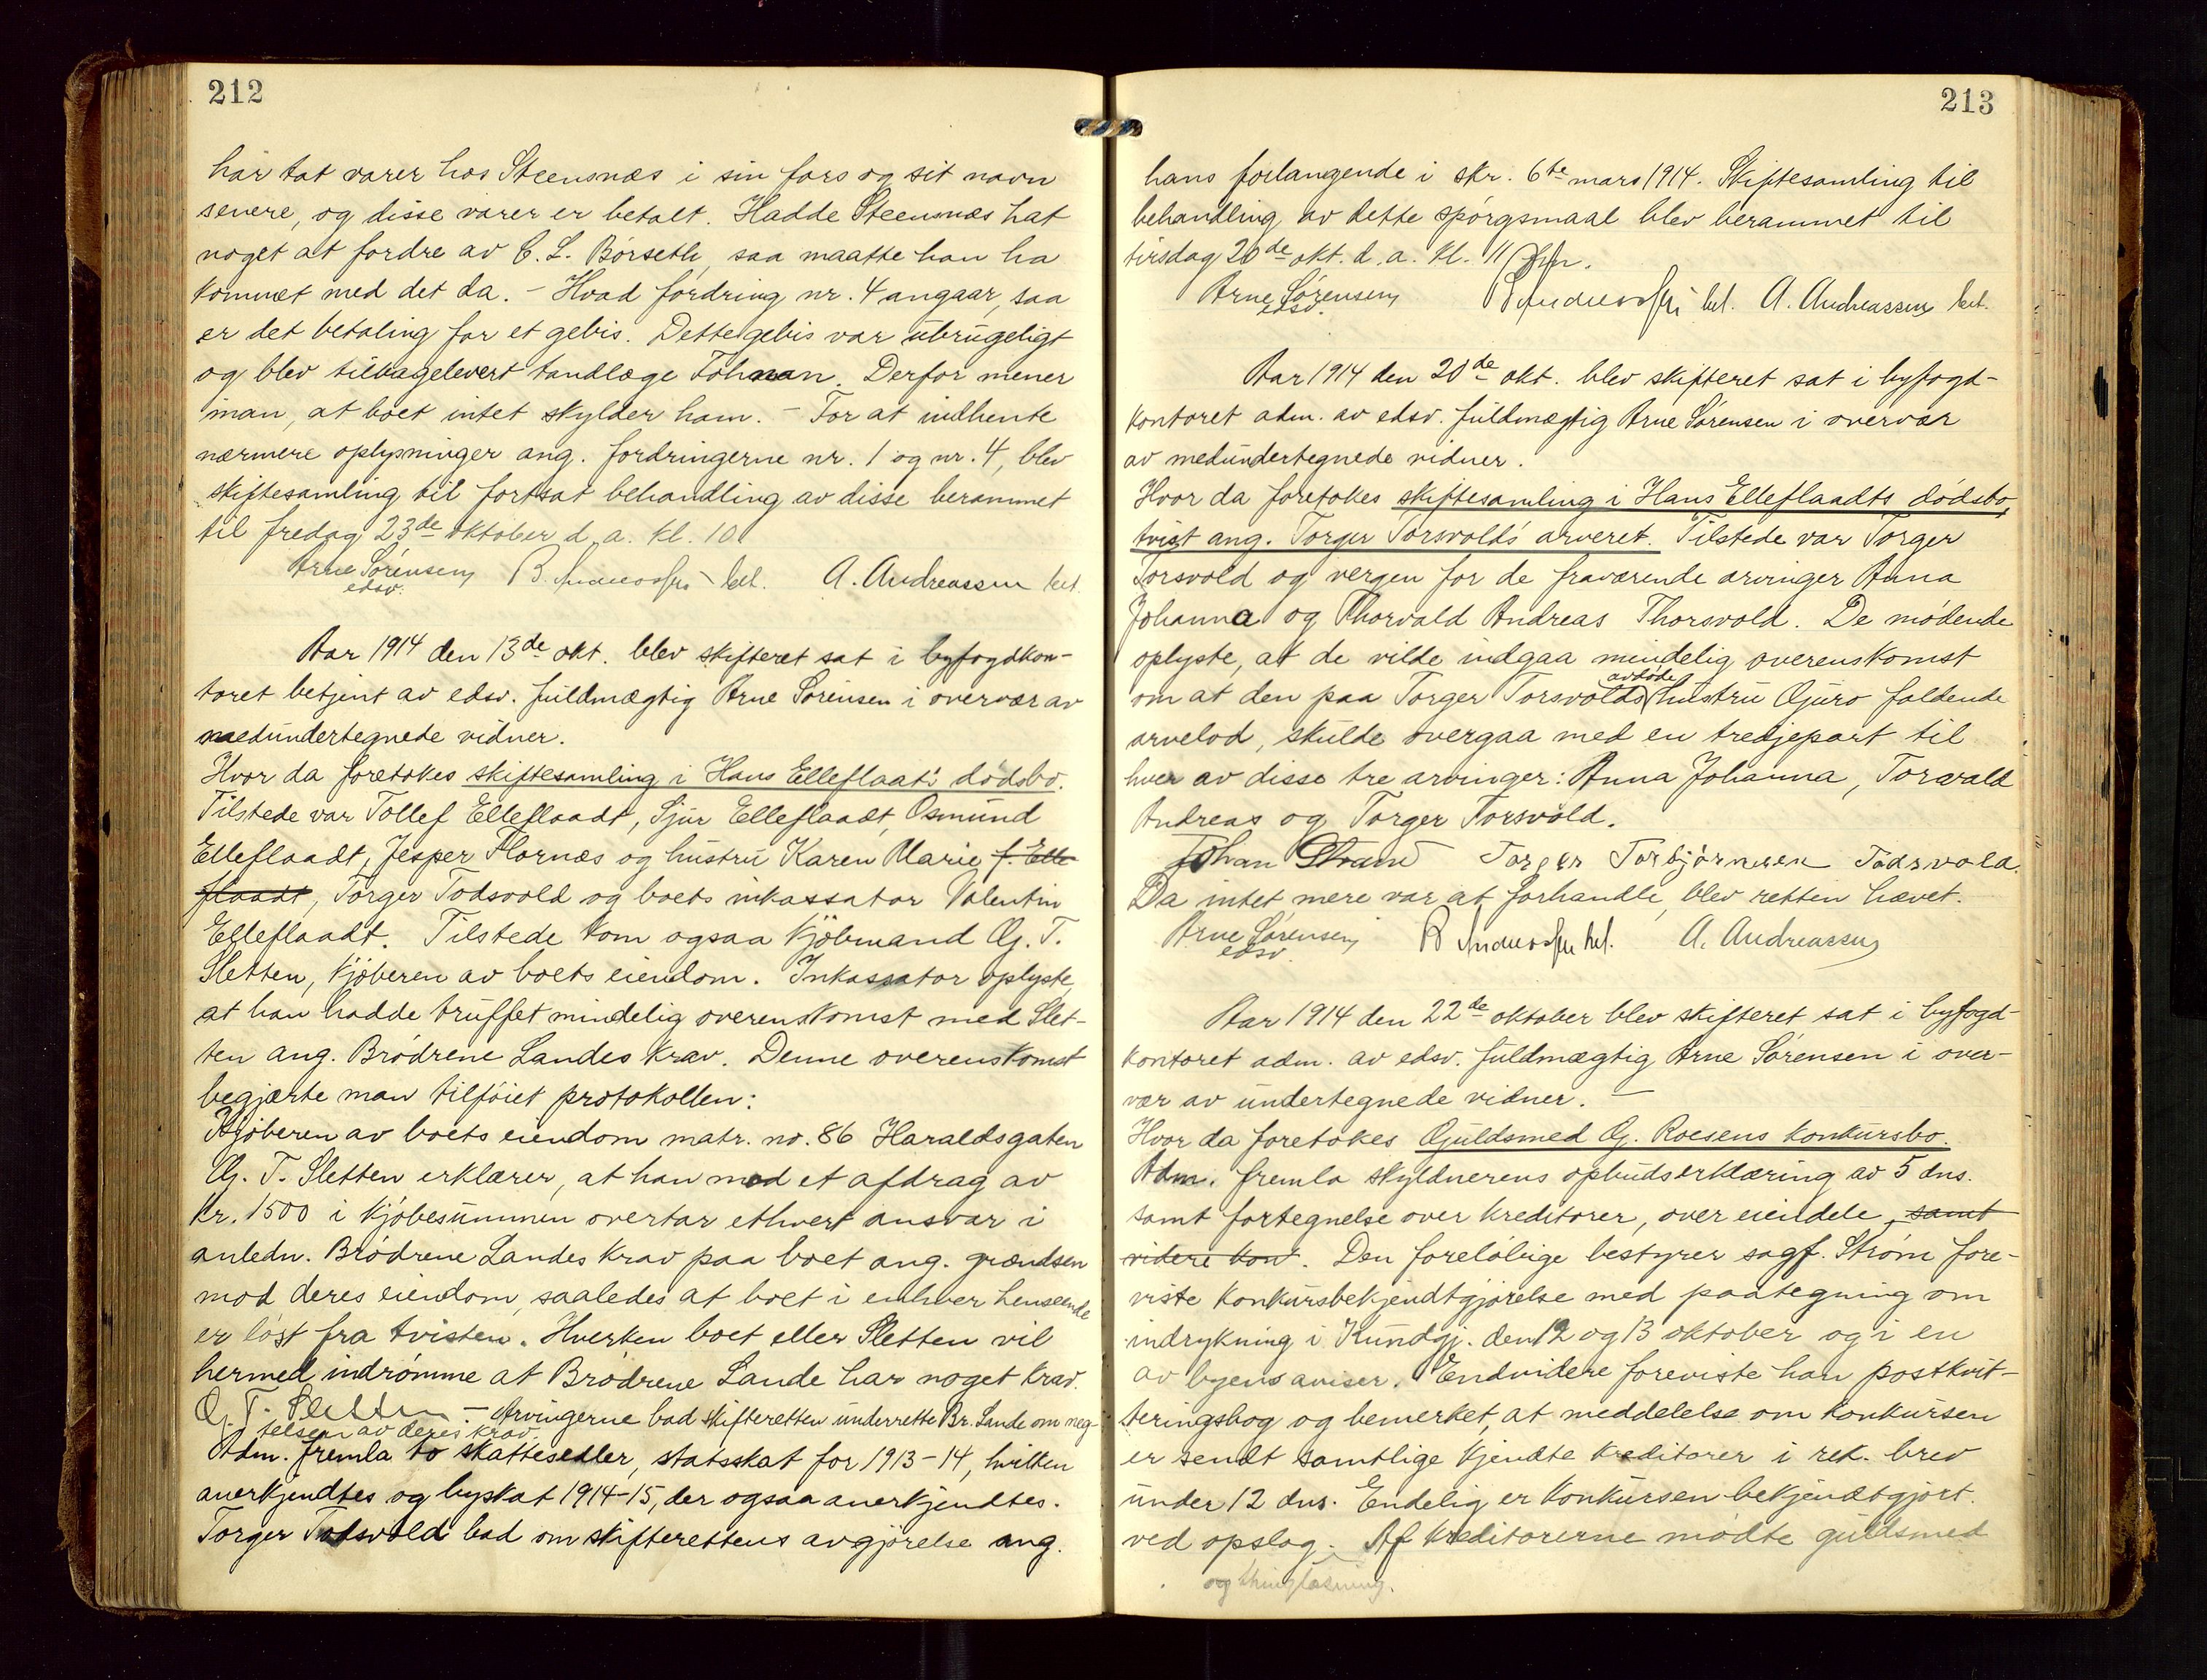 212
har tat varer hos Steensnæs i sin fars og sit navn
senere, og disse varer er betalt. Hadde Steensnæs hat
noget at fordre av C. L. Börseth, saa maatte han ha
kommet med det da. – Hvad fordring nr. 4 angaar, saa
er det betaling for et gebis. Dette gebis var ubrugeligt
og blev tilbagelevert tandlæge Tohnan. Derfor mener
man, at boet intet skylder ham. – For at indhente
nærmere oplysninger ang. fordringerne nr. 1 og nr. 4, blev
skiftesamling til fortsat behandling av disse berammet
til fredag 23de oktober d. a. kl. 10.
Arne Sörensen A. Andreassen
edsv.
Aar 1914 den 13de okt. blev skifteret sat i byfogdkon-
toret betjent av edsv. fuldmægtig Arne Sörensen i overvær av
medundertegnede vidner.
Hvor da foretokes skiftesamling i Hans Elleflaat's dödsbo.
Tilstede var Tollef Elleflaadt, Sjur Elleflaadt, Osmund
Elleflaadt, Jesper Flornæs og hustru Karen Marie f. Elle-
flaadt, Torger Todsvold og boets inkassator Valentin
Elleflaadt. Tilstede kom ogsaa kjöbmand G. T.
Sletten, kjöberen av boets eiendom. Inkassator oplyste,
at han hadde truffet mindelig overenskomst med Slet-
ten ang. Brödrene Landes krav. Denne overenskomst
begjærte man tilföiet protokollen:
Kjöberen av boets eiendom matr. no. 86 Haraldsgaten
G. T. Sletten erklærer, at han mod et afdrag av
kr. 1500 i kjöbesummen overtar ethvert ansvar i
anledn. Brödrene Landes krav paa boet ang. grændsen
mod deres eiendom, saaledes at boet i enhver henseende
er löst fra tvisten. Hverken boet eller Sletten vil
hermed indrömme at Brödrene Lande har noget krav.
G. T. Sletten – Arvingerne bad skifteretten underrette Br. Lande om neg-
telsen av deres krav.
Adm. fremla to skattesedler, statsskat for 1913–14, hvilken
anerkjendtes og byskat 1914–15, der ogsaa anerkjendtes.
Torger Todsvold bad om skifterettens avgjörelse ang.
213
hans forlangende i skr. 6te mars 1914. Skiftesamling til
behandling av dette spörgsmaal blev berammet til
tirsdag 20de okt. d. a. kl. 11 fm.
Arne Sörensen A. Andreassen
edsv.
Aar 1914 den 20de okt. blev skifteret sat i byfogd-
kontoret adm. av edsv. fuldmægtig Arne Sörensen i overvær
av medundertegnede vidner.
Hvor da foretokes skiftesamling i Hans Elleflaadts dödsbo,
tvist ang. Torger Torsvold's arveret. Tilstede var Torger
Torsvold og vergen for de fraværende arvinger Anna
Johanna og Thorvald Andreas Thorsvold. De mödende
oplyste, at de vilde indgaa mindelig overenskomst
avdöde
om at den paa Torger Torsvolds hustru Gjuro faldende
arvelod, skulde overgaa med en tredjepart til
hver av disse tre arvinger: Anna Johanna, Torvald
Andreas og Torger Torsvold.
Johan Strand Torger Torbjörnsen Todsvold.
Da intet mere var at forhandle, blev retten hævet.
Arne Sörensen A. Andreassen
edsv.
Aar 1914 den 22de oktober blev skifteret sat i byfogd-
kontoret adm. av edsv. fuldmægtig Arne Sörensen i over-
vær av undertegnede vidner. –
Hvor da foretokes Guldsmed G. Roesens konkursbo.
Adm. fremla skyldnerens opbudserklæring av 5 dns.
samt fortegnelse over kreditorer, over eiendele, samt
videre kon. Den forelöbige bestyrer sagf. Ström fore-
viste konkursbekjendtgjörelse med paategning om
indrykning i Kundgj. den 12 og 13 oktober og i en
av byens aviser. Endvidere foreviste han postkvit-
teringsbog og bemerket, at meddelelse om konkursen
er sendt samtlige kjendte kreditorer i rek. brev
under 12 dns. Endelig er konkursen bekjendtgjort
ved opslag. Af kreditorerne mödte guldsmed
og thinglæsning.